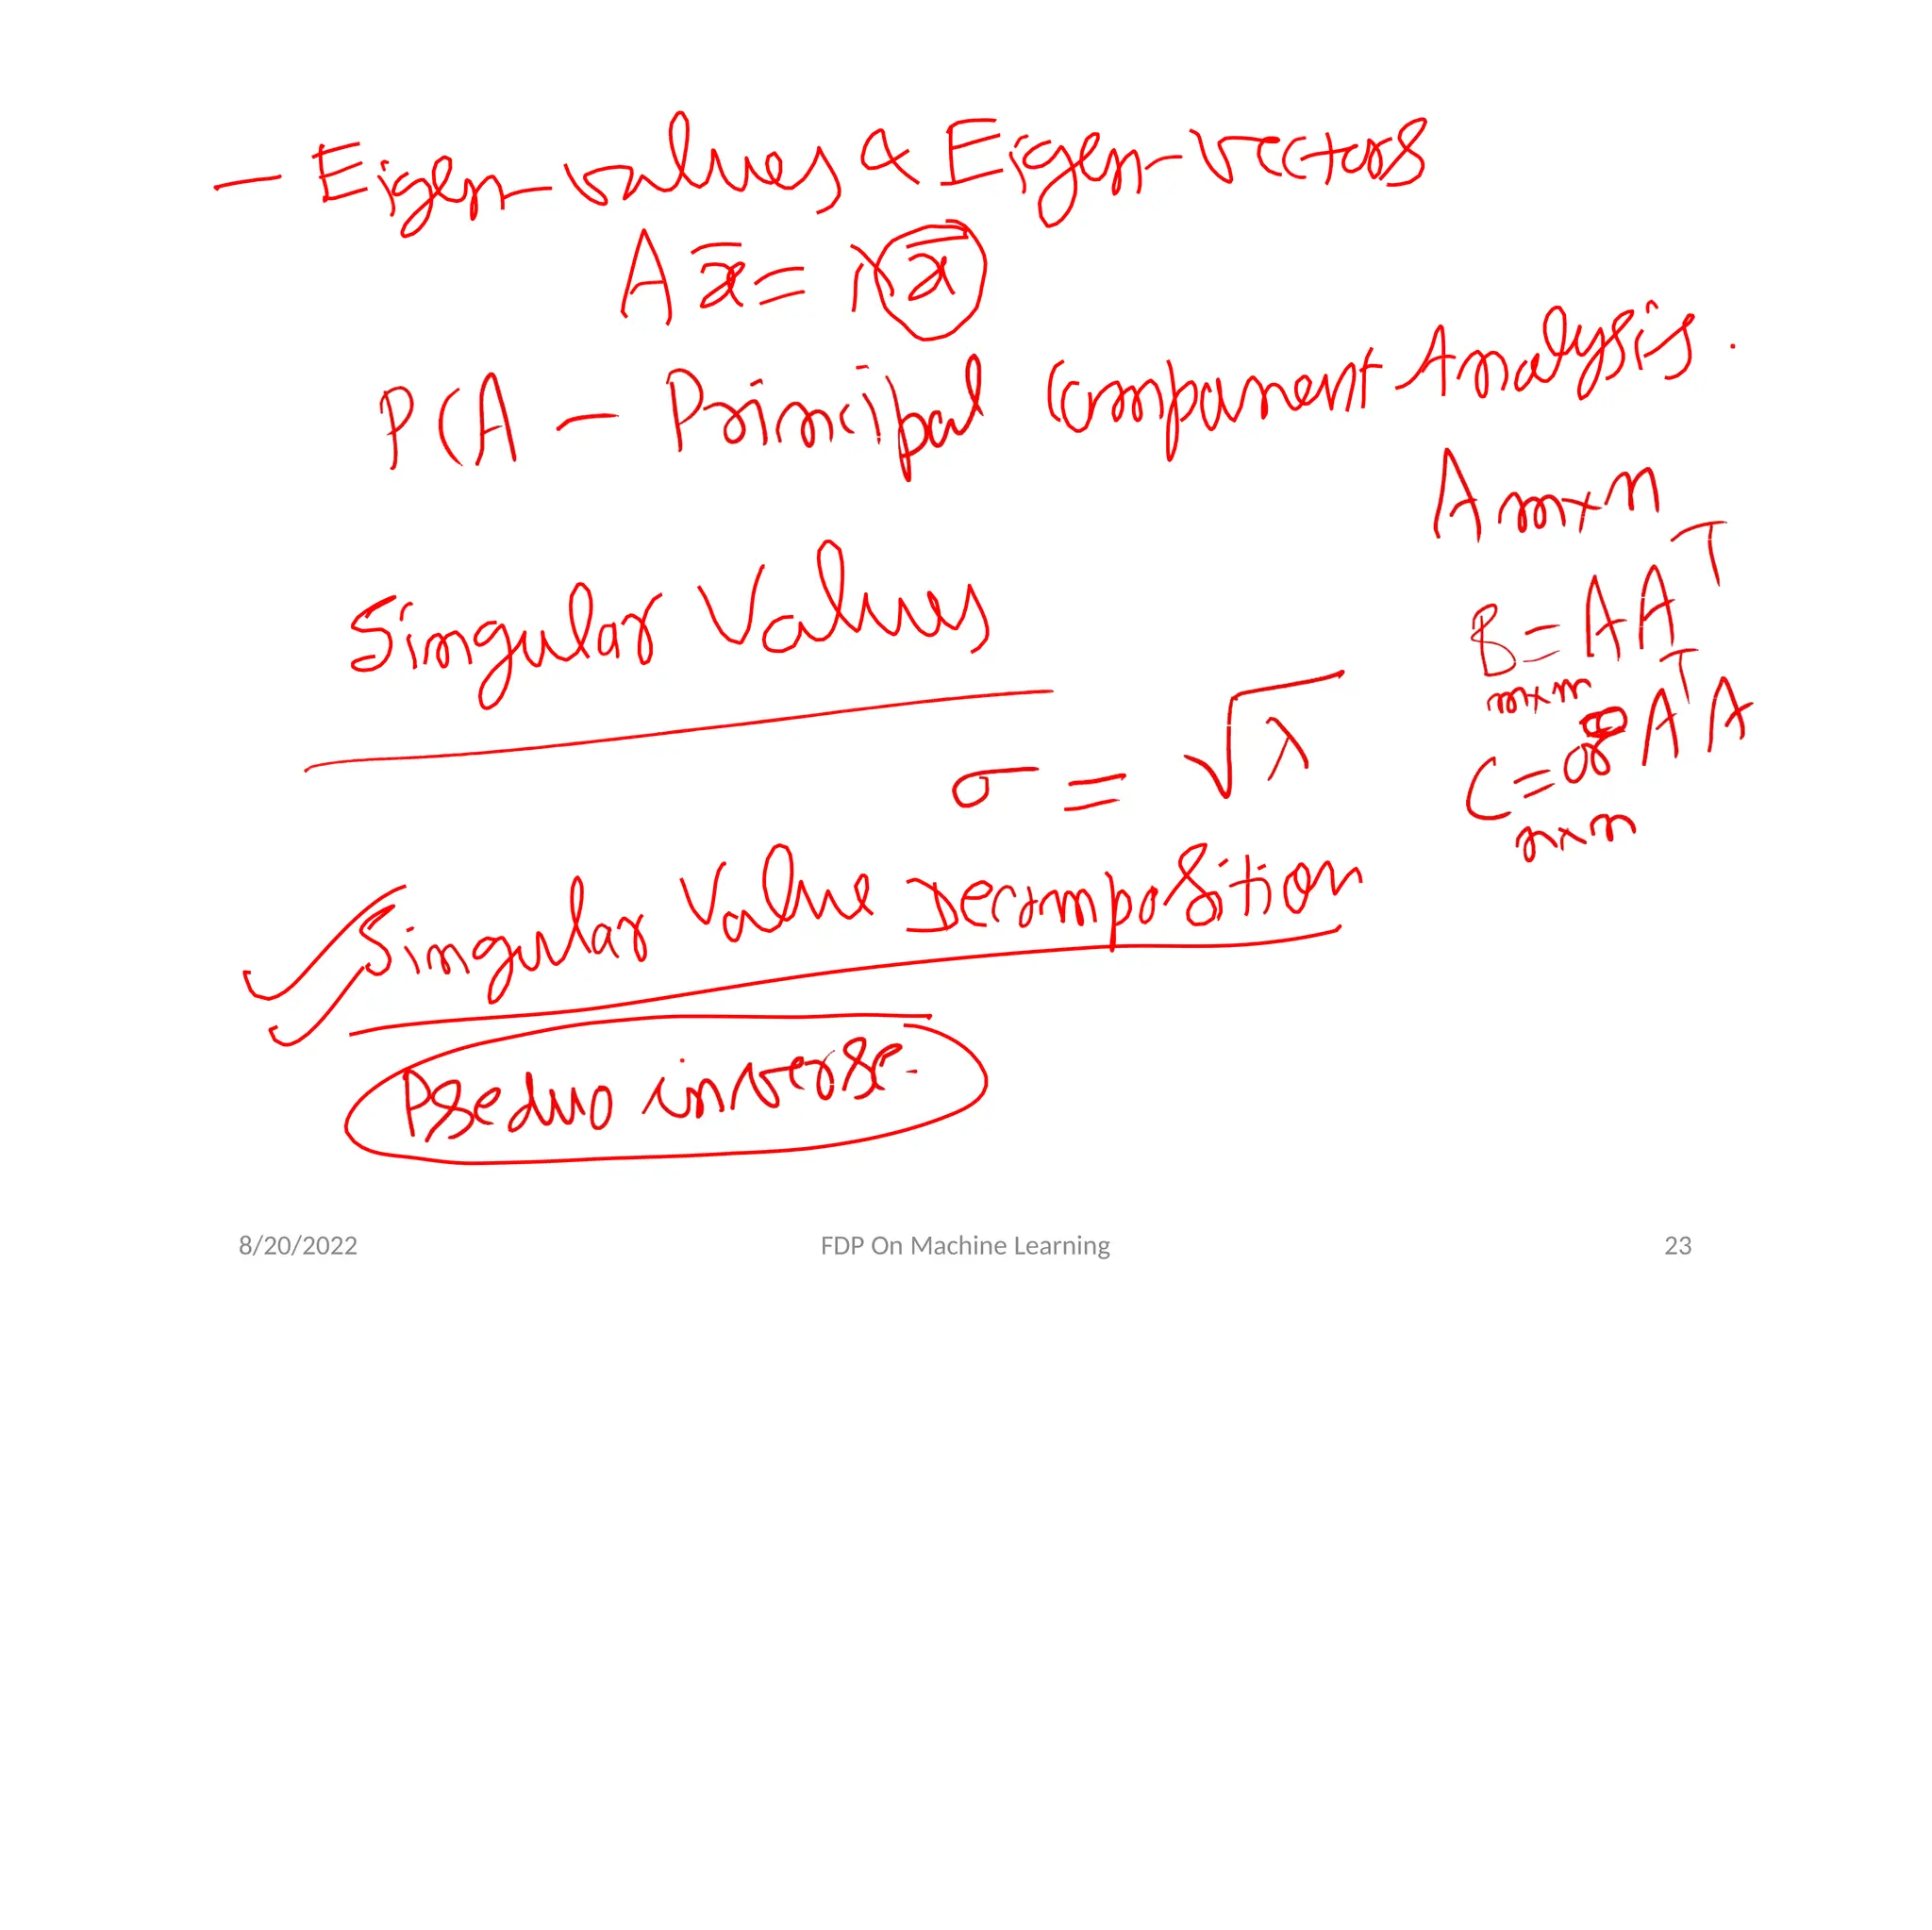 — Eigen-values & Eigen-vectors
A x̄ = λ x̄
PCA – Principal Component Analysis.
A m×n
Singular Values
B = A Aᵀ
m×m
σ = √λ
C = Aᵀ A
n×n
Singular Value Decomposition
Psedu inverse.
8/20/2022
FDP On Machine Learning
23